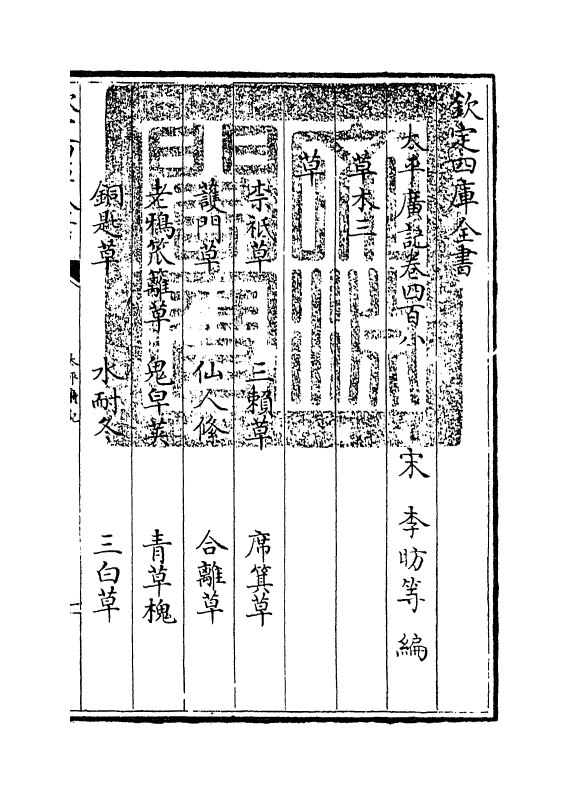 欽定四庫全書
太平廣記卷四百八
宋 李昉等 編
草木三
草
柰祗草 三賴草 席箕草
護門草 仙人絛 合離草
老鴉笊籬草 鬼皁莢 青草槐
銅匙草 水耐冬 三白草